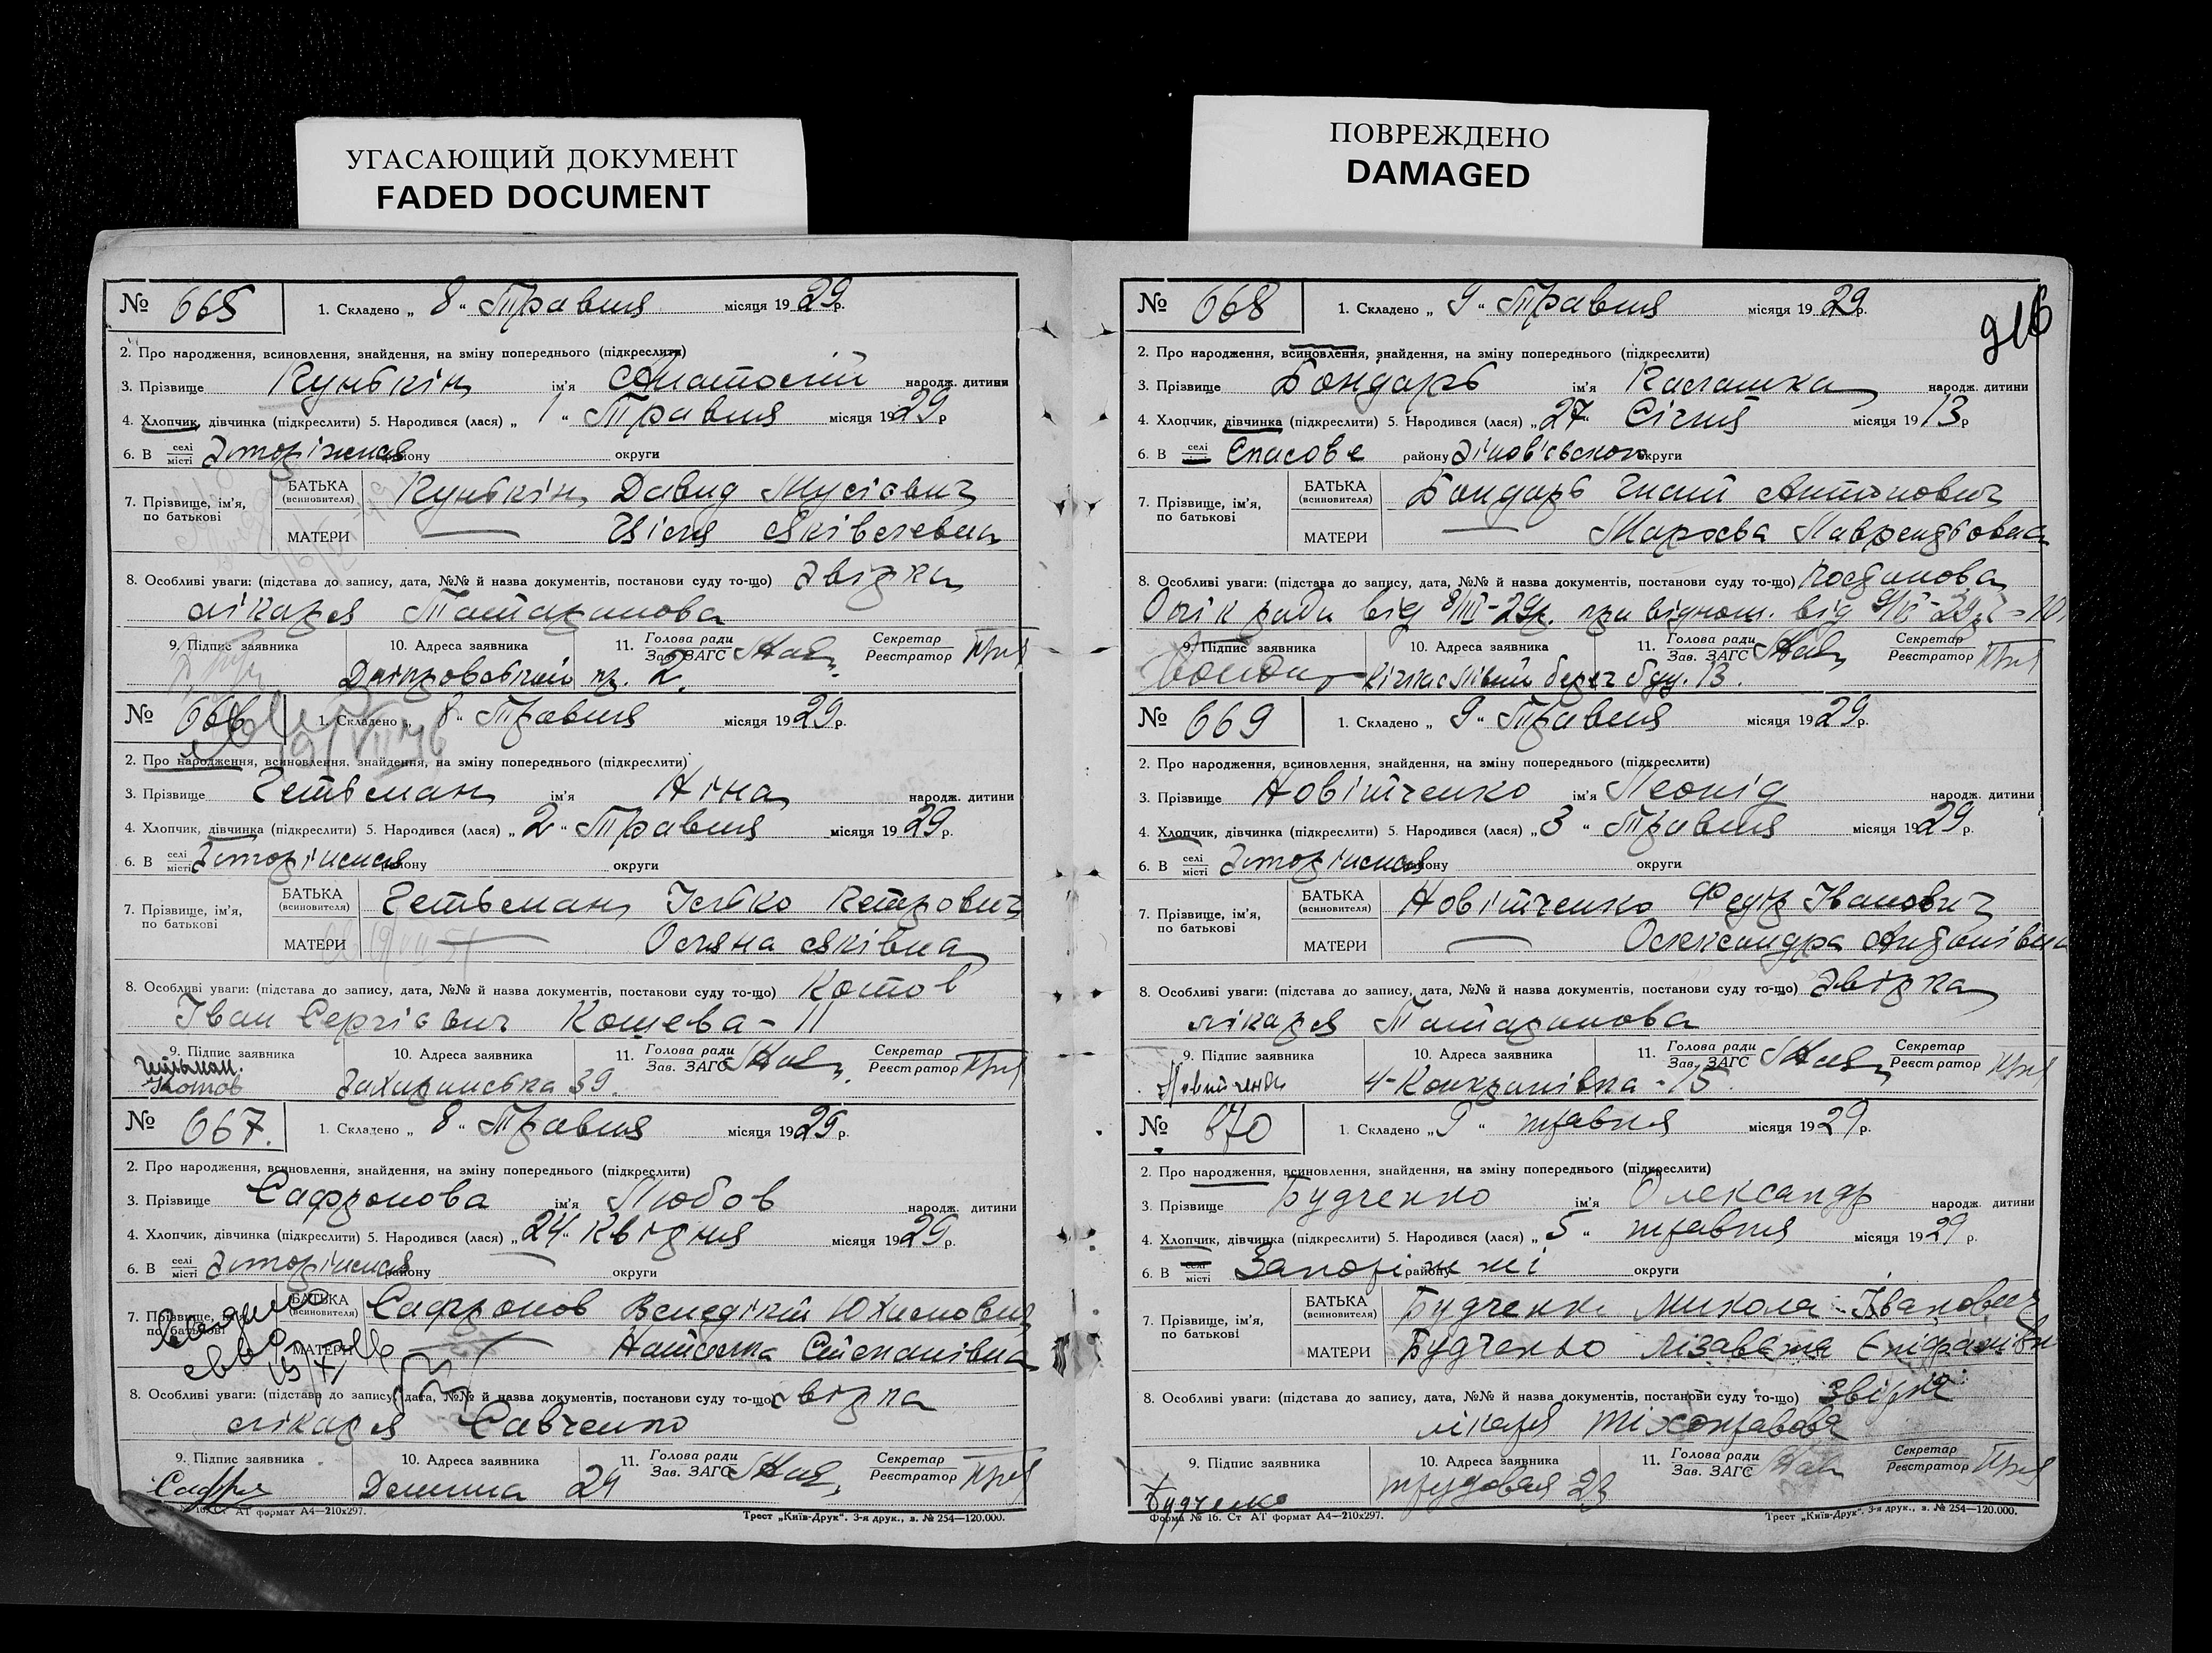 УГАСАЮЩИЙ ДОКУМЕНТ
FADED DOCUMENT
ПОВРЕЖДЕНО
DAMAGED
№ 665 1. Складено „ 8 “ Травня місяця 1929р.
2. Про народження, всиновлення, знайдення, на зміну попереднього (підкреслити)
3. Прізвище Кунькін ім'я Анатолій народж. дитини
4. Хлопчик, дівчинка (підкреслити) 5. Народився (лася) „ 1 “ Травня місяця 1929р
6. В селі місті Запоріжжя району округи
7. Прізвище, ім'я, по батькові
БАТЬКА (всиновителя) Кунькін Давид Мусієвич
МАТЕРИ — Яківлевна
8. Особливі уваги: (підстава до запису, дата, №№ й назва документів, постанови суду то-що) Звірка
лікаря Татаранова
9. Підпис заявника 10. Адреса заявника 11. Голова ради Зав. ЗАГС Секретар Реєстратор
Дніпровський пр. 2.
№ 666 1. Складено „ 8 “ Травня місяця 1929р.
19/VII 46
2. Про народження, всиновлення, знайдення, на зміну попереднього (підкреслити)
3. Прізвище Гетьман ім'я Ніна народж. дитини
4. Хлопчик, дівчинка (підкреслити) 5. Народився (лася) „ 2 “ Травня місяця 1929р.
6. В селі місті Запоріжжя району округи
7. Прізвище, ім'я, по батькові
БАТЬКА (всиновителя) Гетьман Ілько Петрович
МАТЕРИ — Оляна Яківна
8. Особливі уваги: (підстава до запису, дата, №№ й назва документів, постанови суду то-що) Котов
Іван Сергієвич Кошева - 11
9. Підпис заявника 10. Адреса заявника 11. Голова ради Зав. ЗАГС Секретар Реєстратор
Гетьман.
Котов 39.
№ 667. 1. Складено „ 8 “ Травня місяця 1929р.
2. Про народження, всиновлення, знайдення, на зміну попереднього (підкреслити)
3. Прізвище Сафронова ім'я Любов народж. дитини
4. Хлопчик, дівчинка (підкреслити) 5. Народився (лася) „ 24 “ Квітня місяця 1929р.
6. В селі місті Запоріжжя району — округи
7. Прізвище, ім'я, по батькові
БАТЬКА (всиновителя) Сафронов Венедікій Юхимович
МАТЕРИ — Наталка Степанівна
8. Особливі уваги: (підстава до запису, дата, №№ й назва документів, постанови суду то-що) Звірка
лікаря Савченко
9. Підпис заявника 10. Адреса заявника 11. Голова ради Зав. ЗАГС Секретар Реєстратор
24
АТ формат А4—210x297. Трест „Київ-Друк“. 3-я друк., з. № 254—120.000.
916
№ 668 1. Складено „ 9 “ Травня місяця 1929р.
2. Про народження, всиновлення, знайдення, на зміну попереднього (підкреслити)
3. Прізвище Бондарь ім'я Палашка народж. дитини
4. Хлопчик, дівчинка (підкреслити) 5. Народився (лася) „ 27 “ Січня місяця 1913р
6. В селі Спасове району Зінов'євської округи
7. Прізвище, ім'я, по батькові
БАТЬКА (всиновителя) Бондарь Гнат Антонович
МАТЕРИ — Лаврентьовна
8. Особливі уваги: (підстава до запису, дата, №№ й назва документів, постанови суду то-що) Постанова
Опік ради від 8/III-29р. при віднош. від
9. Підпис заявника 10. Адреса заявника 11. Голова ради Зав. ЗАГС Секретар Реєстратор
Кічкас Лівий берег буд. 13.
№ 669 1. Складено „ 9 “ Травня місяця 1929р.
2. Про народження, всиновлення, знайдення, на зміну попереднього (підкреслити)
3. Прізвище Новітченко ім'я Леонід народж. дитини
4. Хлопчик, дівчинка (підкреслити) 5. Народився (лася) „ 3 “ Травня місяця 1929р.
6. В селі місті Запоріжжя району округи
7. Прізвище, ім'я, по батькові
БАТЬКА (всиновителя) Новітченко Федір Іванович
МАТЕРИ — Олександра Андріївна
8. Особливі уваги: (підстава до запису, дата, №№ й назва документів, постанови суду то-що) Звірка
лікаря Татаранова
9. Підпис заявника 10. Адреса заявника 11. Голова ради Зав. ЗАГС Секретар Реєстратор
4-Кондранівка - 15.
№ 670 1. Складено „ 9 “ травня місяця 1929р.
2. Про народження, всиновлення, знайдення, на зміну попереднього (підкреслити)
3. Прізвище Будченко ім'я Олександр народж. дитини
4. Хлопчик, дівчинка (підкреслити) 5. Народився (лася) „ 5 “ травня місяця 1929 р.
6. В селі місті Запоріжжі району округи
7. Прізвище, ім'я, по батькові
БАТЬКА (всиновителя) Будченко Микола Іванович
МАТЕРИ Будченко Лізавета Єпіфанівна
8. Особливі уваги: (підстава до запису, дата, №№ й назва документів, постанови суду то-що) Звірка
лікаря Тіхонравова
9. Підпис заявника 10. Адреса заявника 11. Голова ради Зав. ЗАГС Секретар Реєстратор
Будченко Трудовая 23
Форма № 16. Ст АТ формат А4—210x297. Трест „Київ-Друк“. 3-я друк., з. № 254—120.000.